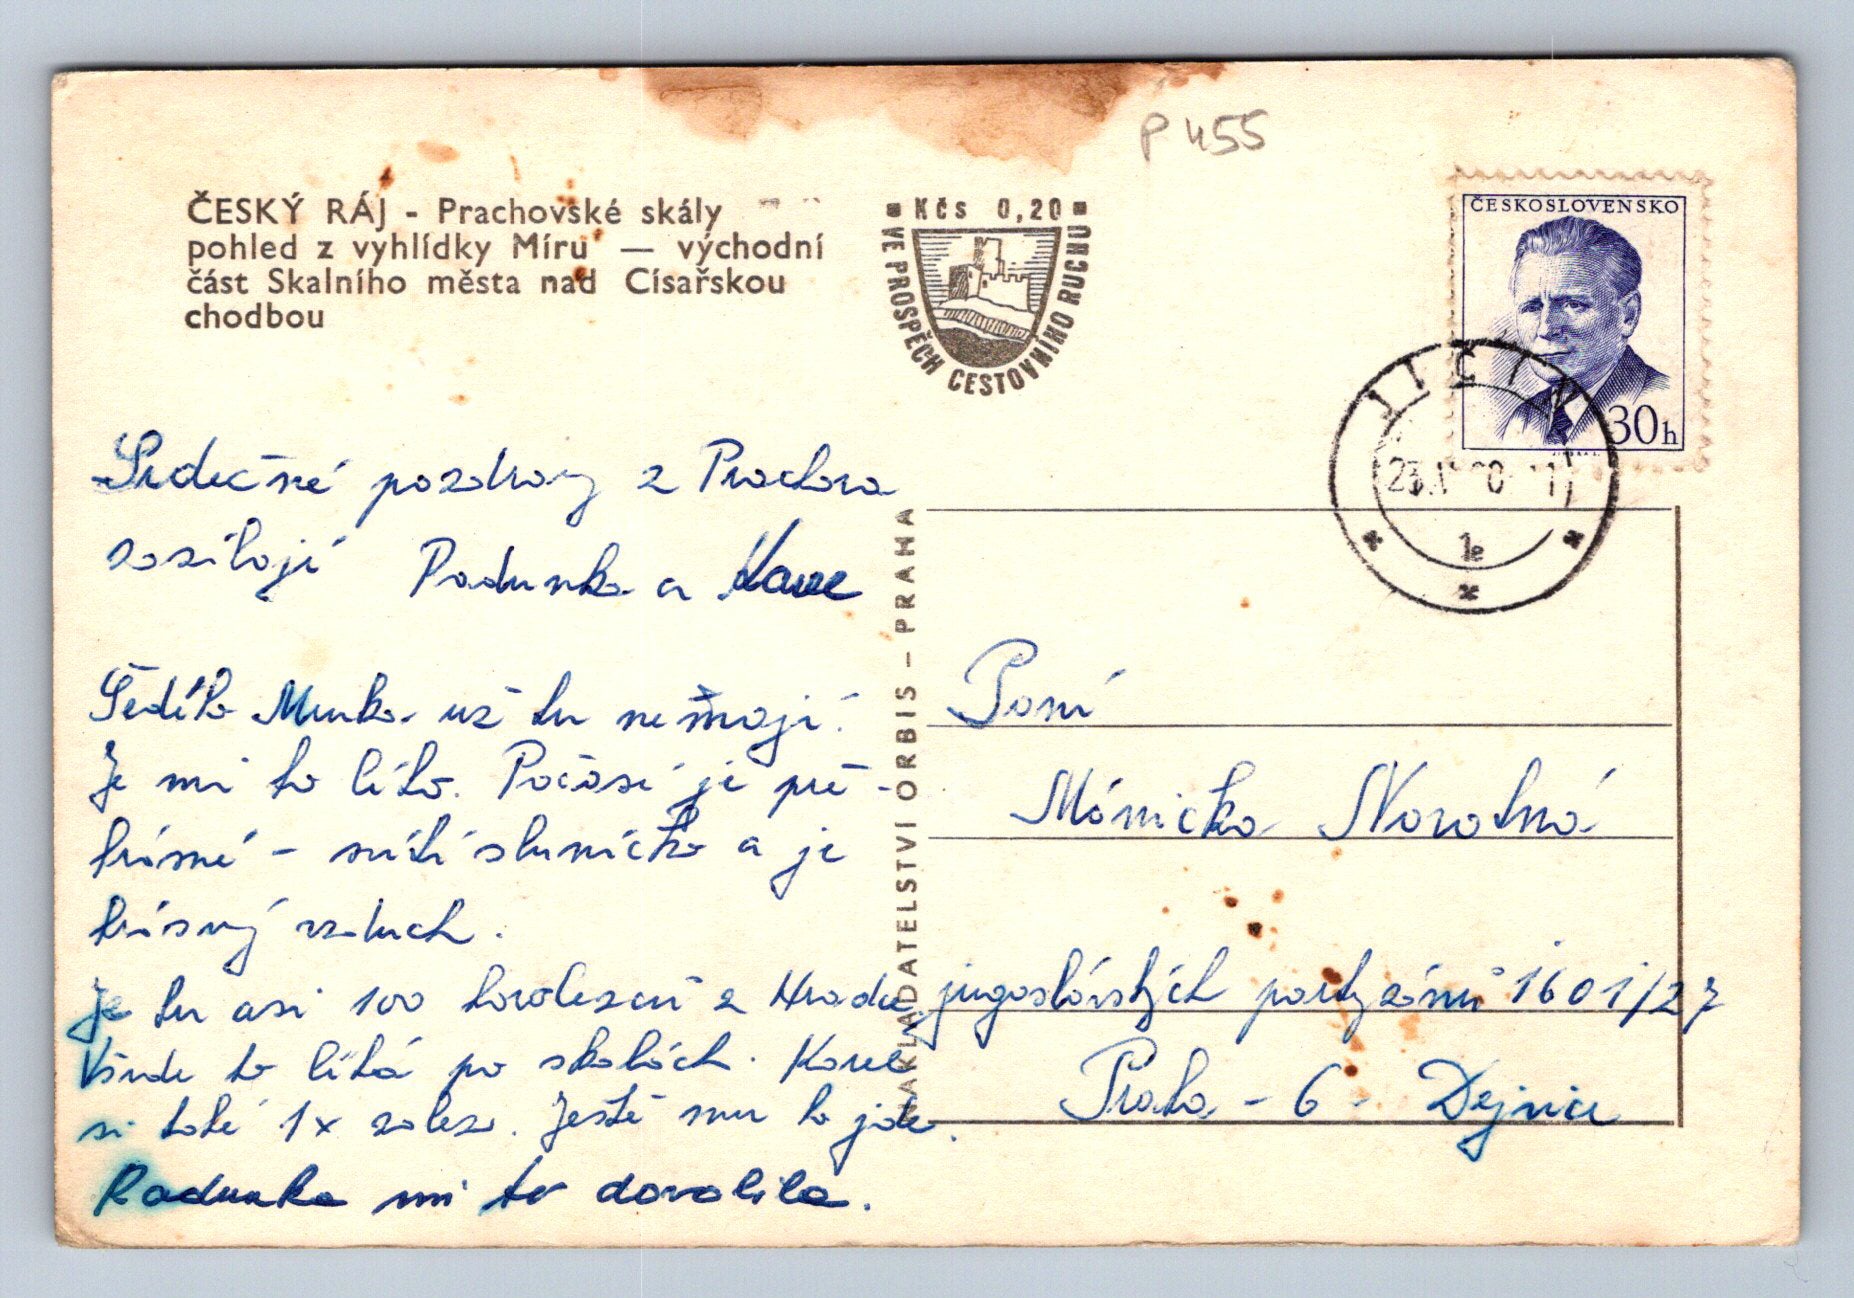 P 455
ČESKÝ RÁJ - Prachovské skály
pohled z vyhlídky Míru — východní
část Skalního města nad Císařskou
chodbou
Kčs 0,20
VE PROSPĚCH CESTOVNÍHO RUCHU
ČESKOSLOVENSKO
30h
JIČÍN
1e
Srdečné pozdravy z Prachova
zasílají Radunka a
už tu nemají.
Je mi to líto. Počasí je pře-
krásné - svítí sluníčko a je
krásný vzduch.
Je tu asi 100 horolezců z Hradce
Všude to lítá po skalách. Karel
si také 1x zalezl. Ještě mu to jde.
Radunka mi to dovolila.
NAKLADATELSTVÍ ORBIS – PRAHA
Paní
Mánička Novotná
jugoslávských partyzánů 1601/27
Praha - 6 - Dejvice